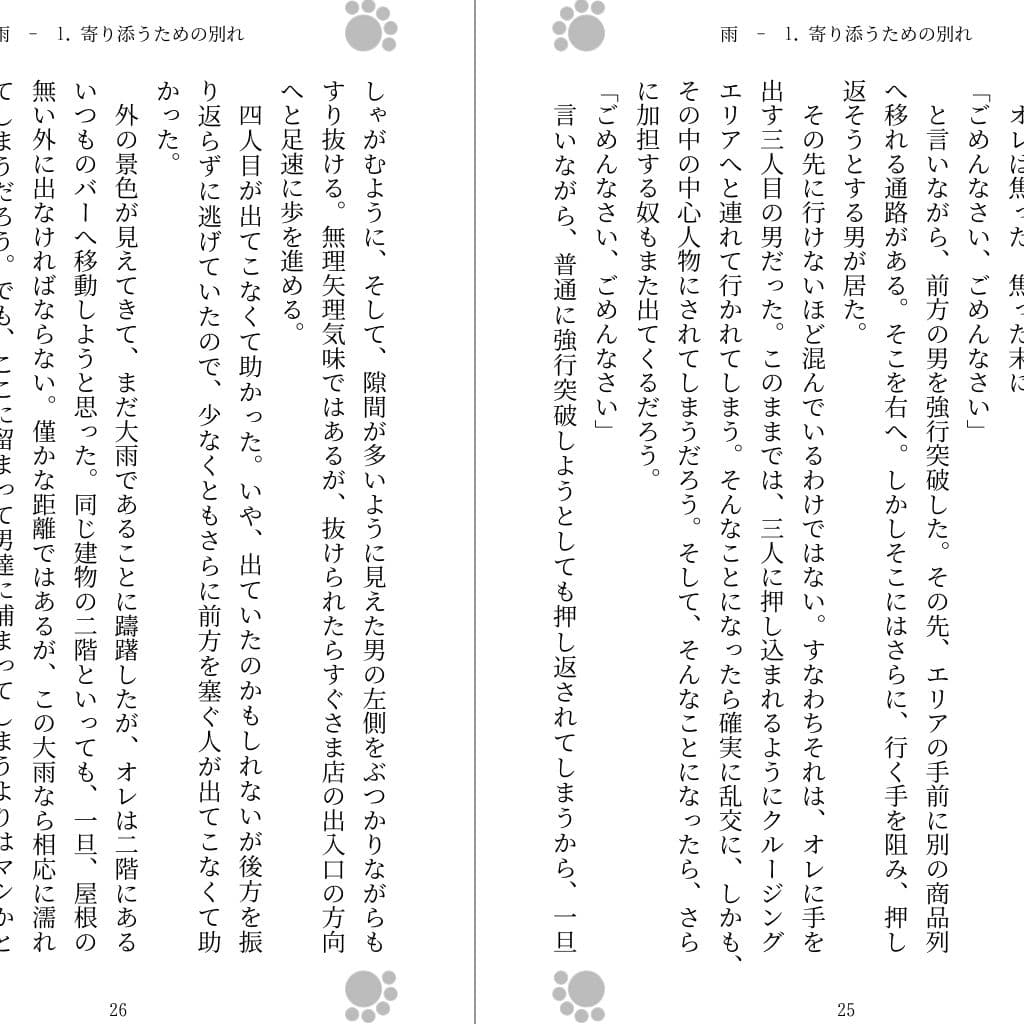 雨 － 1. 寄り添うための別れ
オレは焦った。焦った末に
「ごめんなさい、ごめんなさい」
と言いながら、前方の男を強行突破した。その先、エリアの手前に別の商品列
へ移れる通路がある。そこを右へ。しかしそこにはさらに、行く手を阻み、押し
返そうとする男が居た。
その先に行けないほど混んでいるわけではない。すなわちそれは、オレに手を
出す三人目の男だった。このままでは、三人に押し込まれるようにクルージング
エリアへと連れて行かれてしまう。そんなことになったら確実に乱交に、しかも、
その中の中心人物にされてしまうだろう。そして、そんなことになったら、さら
に加担する奴もまた出てくるだろう。
「ごめんなさい、ごめんなさい」
言いながら、普通に強行突破しようとしても押し返されてしまうから、一旦
25
雨 － 1. 寄り添うための別れ
しゃがむように、そして、隙間が多いように見えた男の左側をぶつかりながらも
すり抜ける。無理矢理気味ではあるが、抜けられたらすぐさま店の出入口の方向
へと足速に歩を進める。
四人目が出てこなくて助かった。いや、出ていたのかもしれないが後方を振
り返らずに逃げていたので、少なくともさらに前方を塞ぐ人が出てこなくて助
かった。
外の景色が見えてきて、まだ大雨であることに躊躇したが、オレは二階にある
いつものバーへ移動しようと思った。同じ建物の二階といっても、一旦、屋根の
無い外に出なければならない。僅かな距離ではあるが、この大雨なら相応に濡れ
てしまうだろう。でも、ここに留まって男達に捕まってしまうよりはマシかと
26